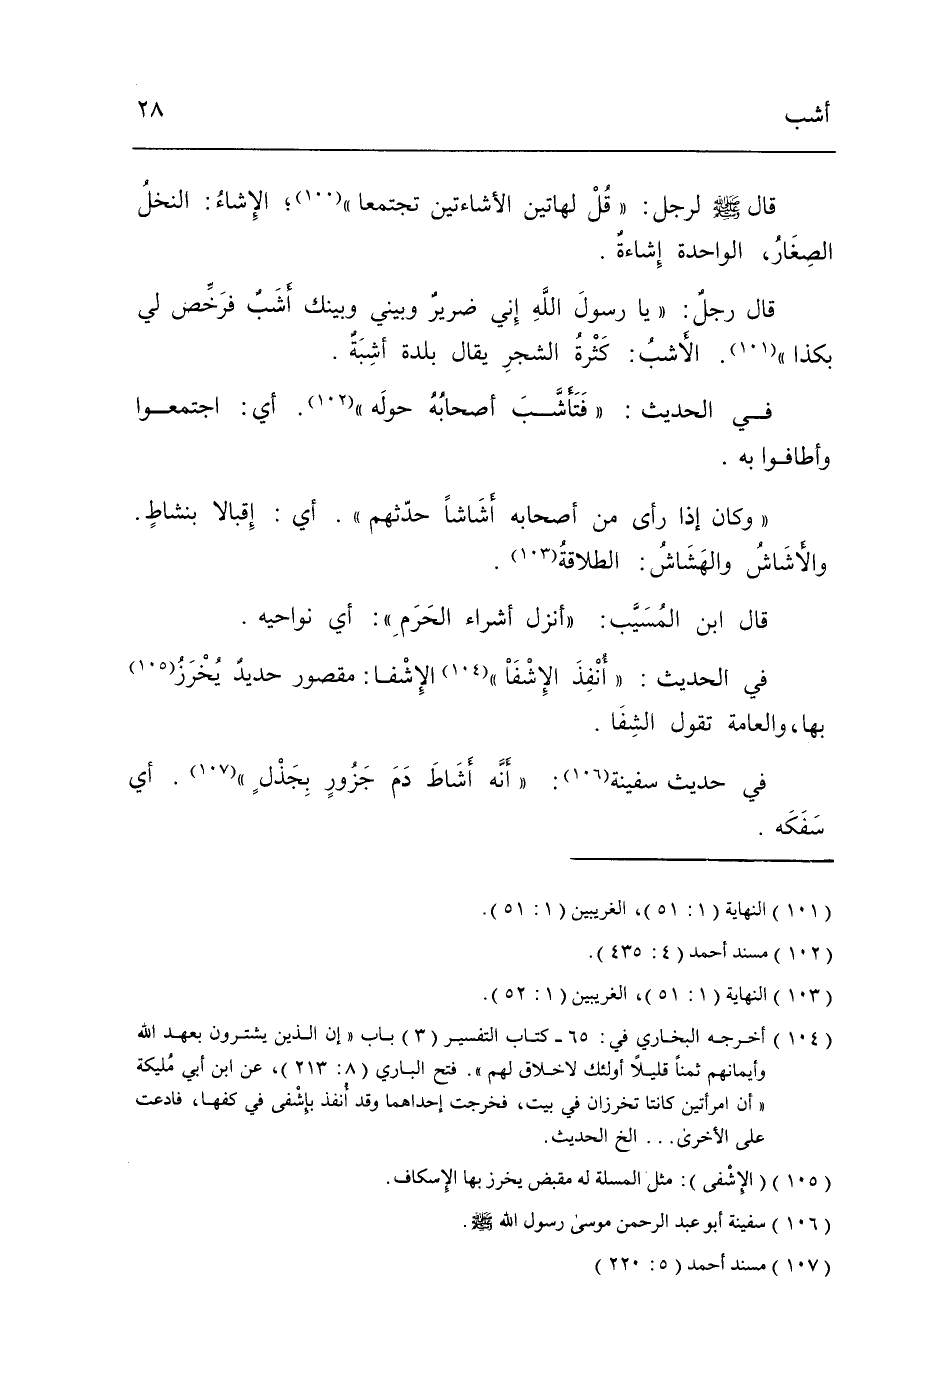 أشب
٢٨
قال ﷺ لرجل : « قُلْ لهاتين الأشاءتين تجتمعا »(١٠٠)؛ الإِشاءُ : النخلُ
الصِغَارُ، الواحدة إِشاءةٌ .
قال رجلٌ : « يا رسولَ اللَّهِ إني ضريرٌ وبيني وبينك أَشَبٌ فرَخِّص لي
بكذا »(١٠١). الأَشبُ : كَثْرةُ الشجرِ يقال بلدة أشِبَةٌ .
فـي الحديث : « فَتَأَشَّـبَ أصحابُهُ حولَه »(١٠٢). أي : اجتمعـوا
وأطافـوا به .
« وكان إذا رأى من أصحابه أَشَاشاً حدّثهم » . أي : إِقبالا بنشاطٍ .
والأَشَاشُ والهَشَاشُ : الطلاقةُ(١٠٣) .
قال ابن المُسَيَّب : «أنزل أشراء الحَرَمِ » : أي نواحيه .
في الحديث : « أُنْفِذَ الإِشْفَاْ »(١٠٤) الإِشْفـا : مقصور حديدٌ يُخْرَزُ(١٠٥)
بها، والعامة تقول الشِفَا .
في حديث سفينة(١٠٦) : « أَنَّه أَشَاطَ دَمَ جَزُورٍ بِجَذْلٍ »(١٠٧) . أي
سَفَكَه .
( ١٠١ ) النهاية ( ١ : ٥١ )، الغريبين ( ١ : ٥١ ).
( ١٠٢ ) مسند أحمد ( ٤ : ٤٣٥ ).
( ١٠٣ ) النهاية ( ١ : ٥١ )، الغريبين ( ١ : ٥٢ ).
( ١٠٤ ) أخـرجـه البخـاري في : ٦٥ ـ كتـاب التفسيـر ( ٣ ) بـاب « إن الـذين يشتـرون بعهـد الله
وأيمانهم ثمناً قليـلًا أولئك لاخـلاق لهم ». فتح البـاري ( ٨ : ٢١٣ )، عن ابن أبي مُليكة
« أن امرأتين كانتا تخرزان في بيت، فخرجت إحداهما وقد أُنفذ بإِشْفى في كفهـا، فادعت
على الأخرىٰ. . . الخ الحديث.
( ١٠٥ ) ( الإِشْفى ) : مثل المسلة له مقبض يخرز بها الإِسكاف.
( ١٠٦ ) سفينة أبو عبد الرحمن موسىٰ رسول الله ﷺ.
( ١٠٧ ) مسند أحمد ( ٥ : ٢٢٠ )